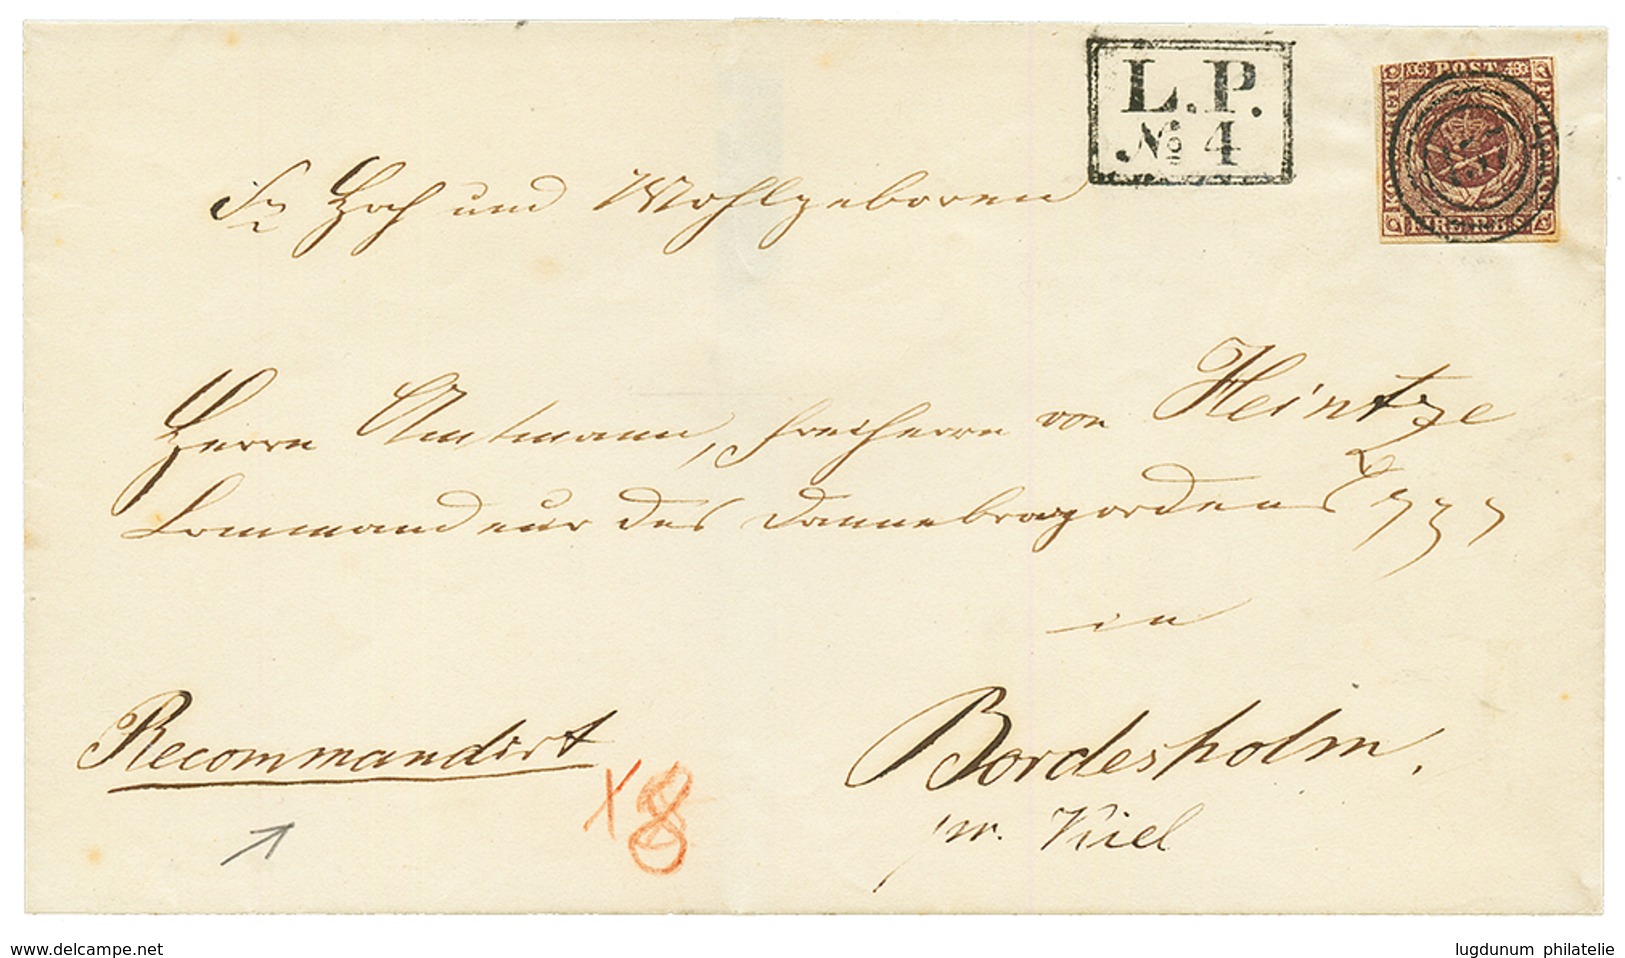 L.P.
№ 4
POST
Sr Hoch und Wohlgeboren
Herrn Amtmann, Freiherrn von Heintze
Commandeur des Dannebrogordens
in
Recommandirt
Bordesholm.
pr. Kiel
x8
www.delcampe.net
lugdunum philatelie